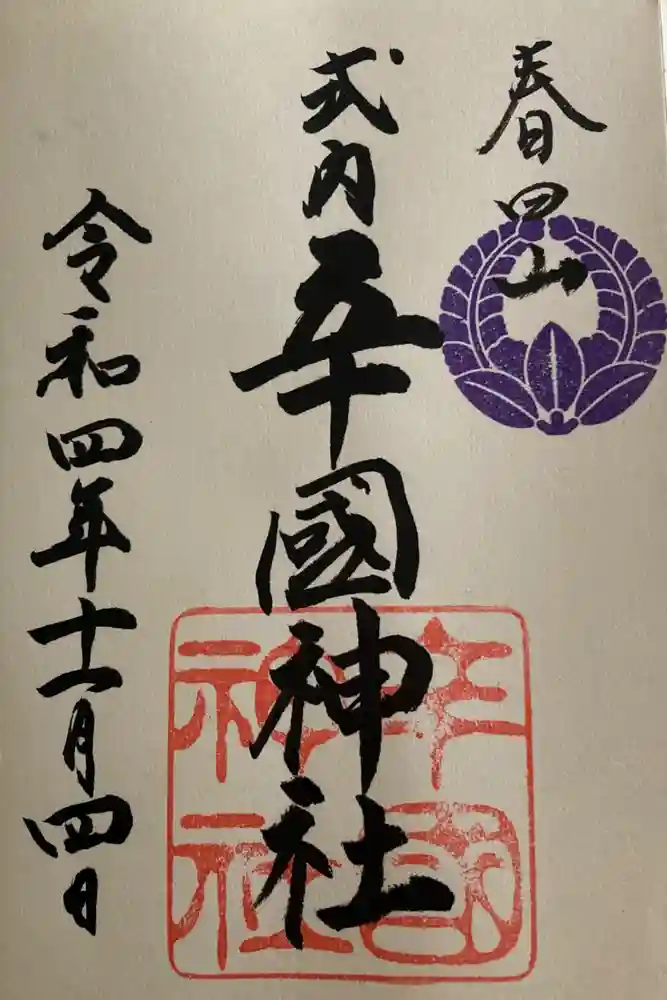 春日山
式内 辛國神社
辛國
神社
令和四年十一月四日